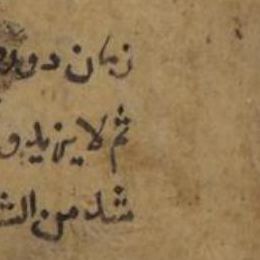 زمان دور
ثم لا يزيد و
شد من الش